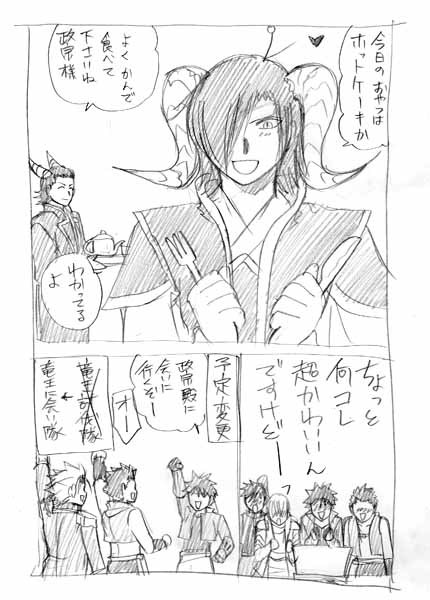 今日の おやつは
ホットケーキか
よく かんで
食べて
下さいね
政宗様
わかってる
よ
ちょっと
何コレ
超かわいいん
ですけどー
予定変更
政宗殿に
会いに
行くぞー
オー
竜王討伐隊
竜王に会い隊